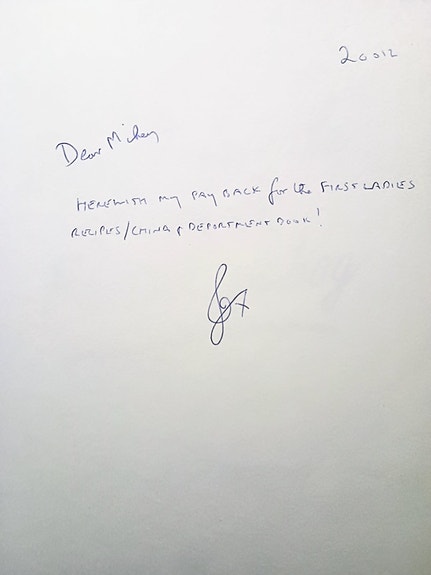 Dear Mikey
HEREWITH MY PAY BACK for the FIRST LADIES
RECIPES/CHINA & DEPORTMENT BOOK!